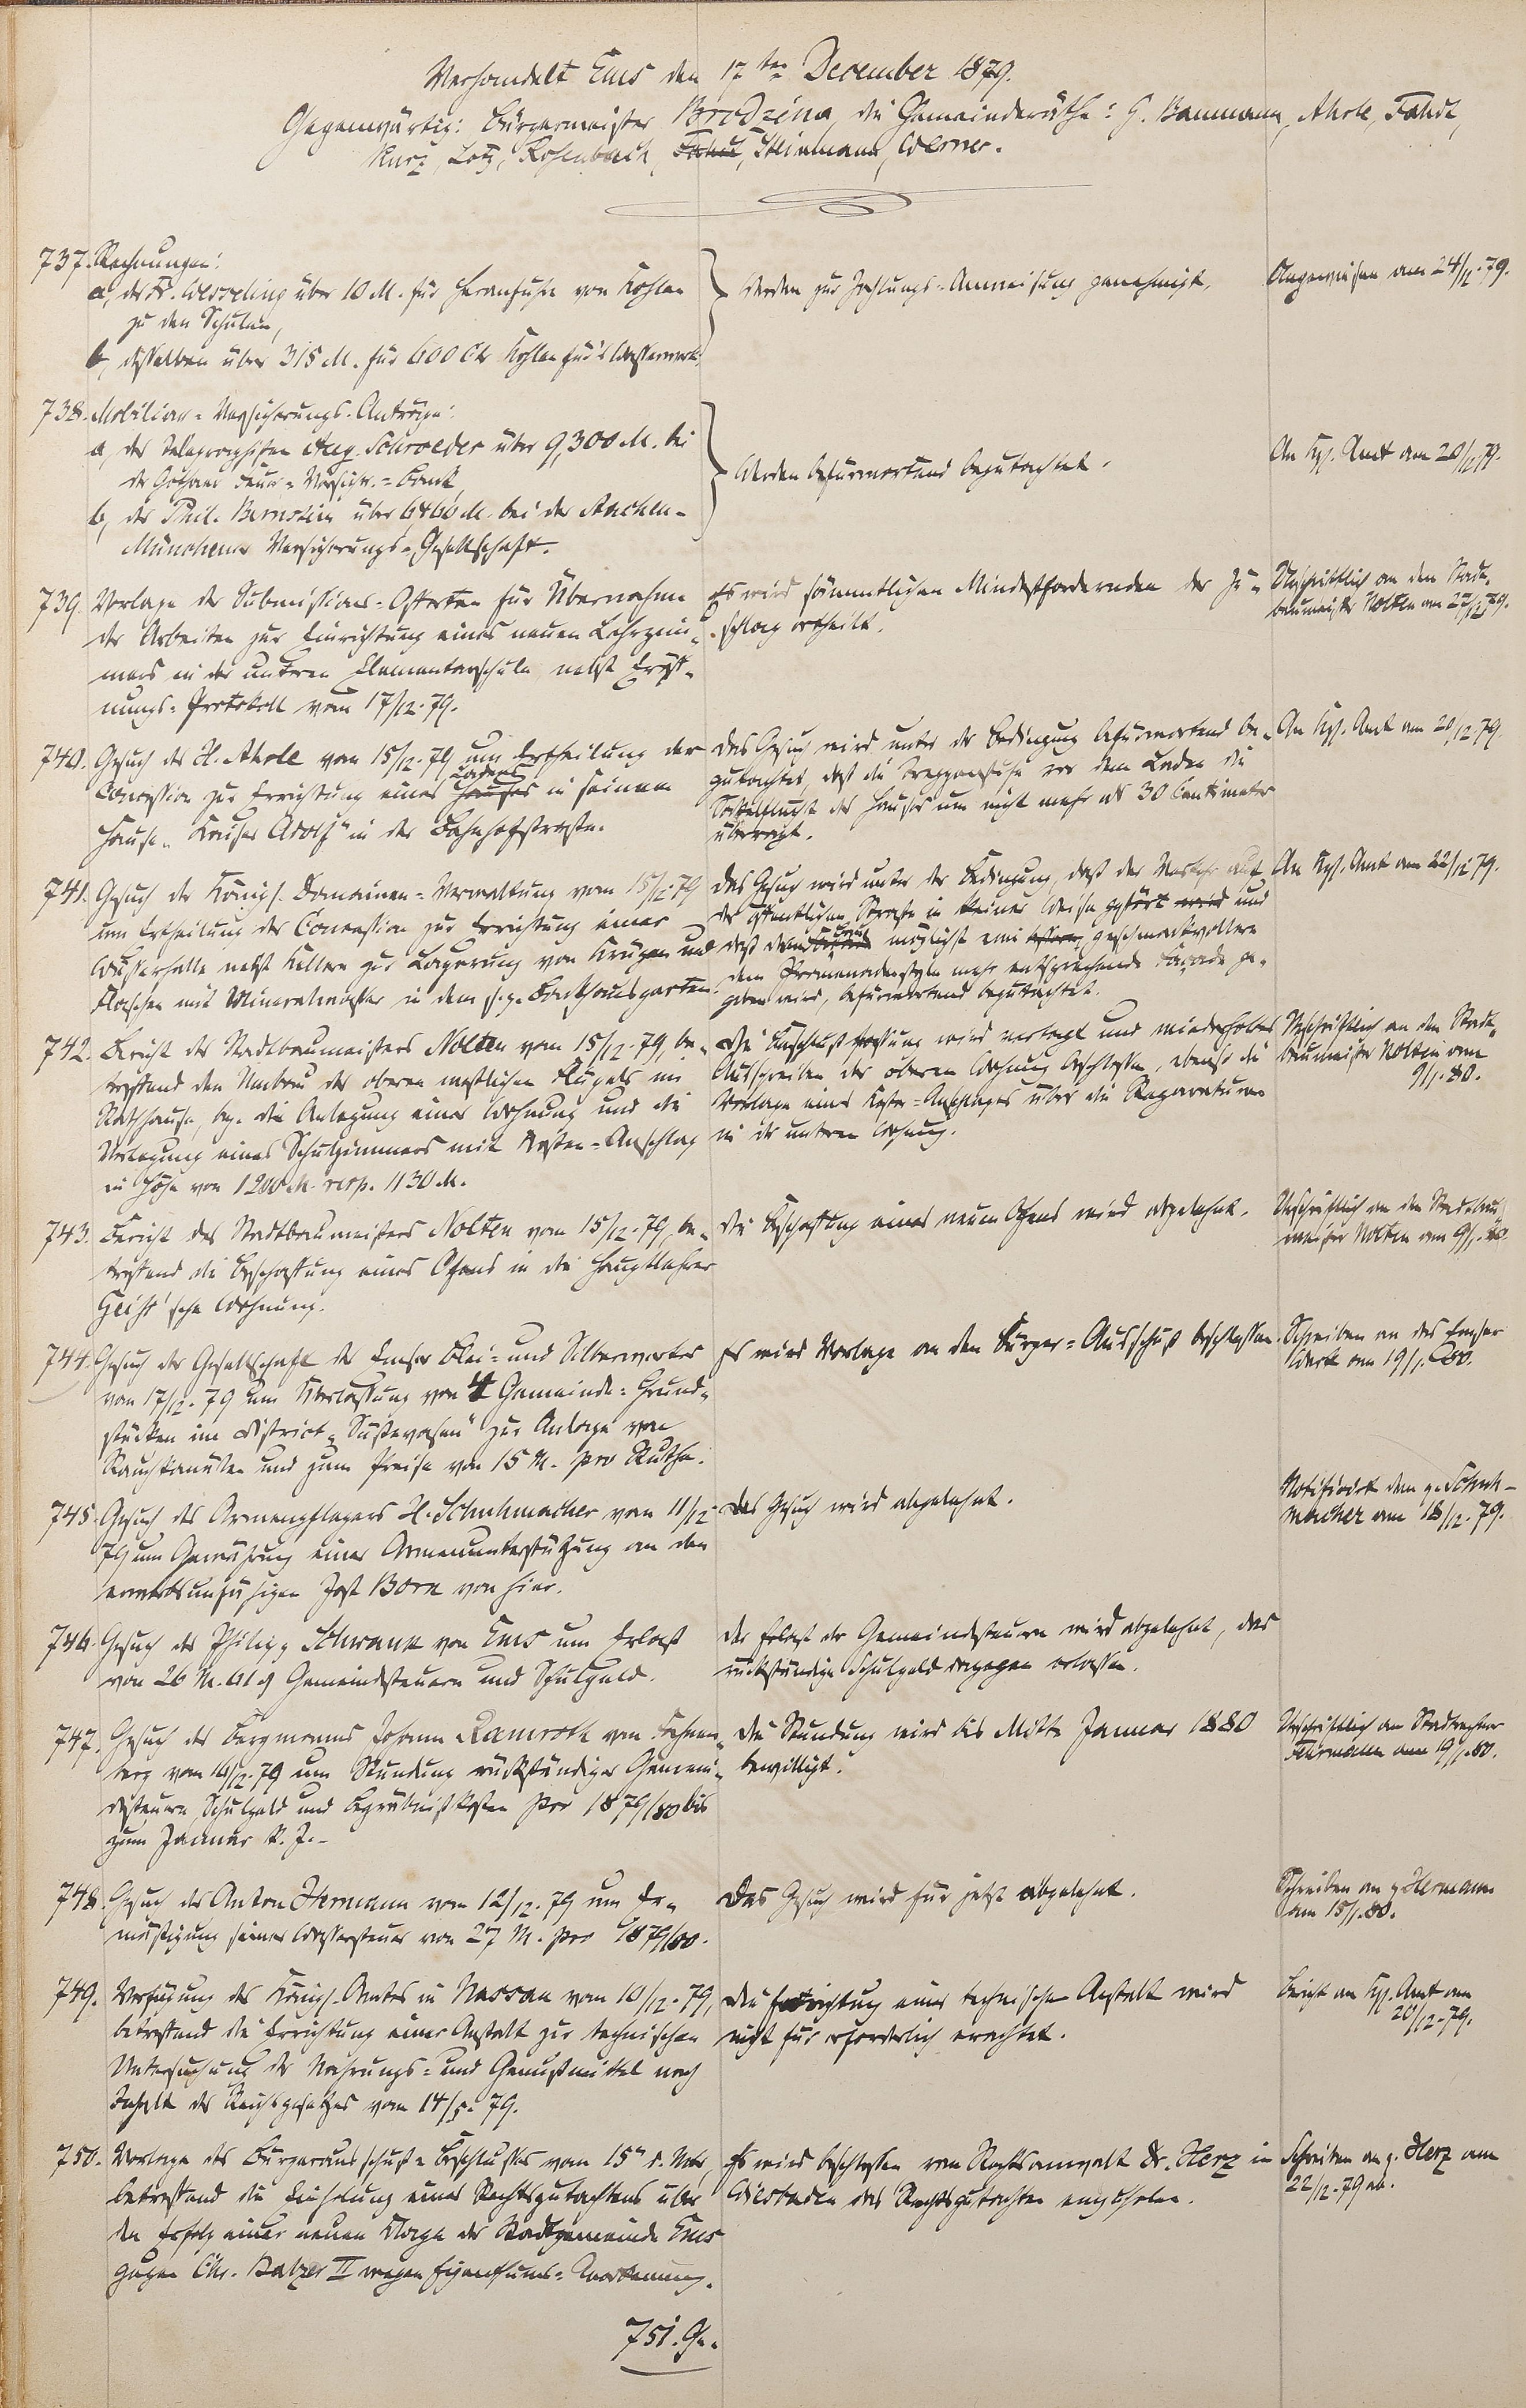 Verhandelt Ems den 17ten December 1879.
Gegenwärtig: Bürgermeister Brodzina, die Gemeinderäthe: G. Baumann, Ahole, Fahdt,
Kurz, Lotz, Rosenbach, Steinmann, Werner.
737. Rechnungen:
a, des Fr. Wesseling über 10 M. für Heranfuhr von Kohlen
zu den Schulen,
b, desselben über 315 M. für 600 Ctr Kohlen für's Wasserwerk
Werden zur Zahlungs-Anweisung genehmigt.
Angewiesen am 24/12.79.
738. Mobiliar-Versicherungs-Anträge:
a, des Telegraphisten Aug. Schroeder über 9,300 M. bei
der Gothaer Feuer-Versich.-Bank
b, des Phil. Bernstein über 6466 M. bei der Aachen-
Münchener Versicherungs-Gesellschaft.
Werden befürwortend begutachtet.
An Kgl. Amt am 20/12.79.
739. Vorlage der Submissions-Offerten für Übernahme
der Arbeiten zur Einrichtung eines neuen Lehrzim-
mers in der unteren Elementarschule nebst Eröff-
nungs-Protokoll vom 17/12.79.
Es wird sämmtlichen Mindestfordernden der Zu-
schlag ertheilt.
Urschriftlich an den Stadt-
baumeister Nolten am 27/12.79.
740. Gesuch des H. Ahole vom 15/12.79 um Ertheilung der
Concession zur Errichtung eines Ladens in seinem
Hause „Kaiser Adolf" in der Bahnhofstraße.
Das Gesuch wird unter der Bedingung befürwortend be-
gutachtet, daß die Treppenstufe vor dem Laden die
Sockelflucht des Hauses um nicht mehr als 30 Centimeter
überragt.
An Kgl. Amt am 20/12.79.
741. Gesuch der Königl. Domainen-Verwaltung vom 15/12.79
um Ertheilung der Concession zur Errichtung einer
Wasserhalle nebst Keller zur Lagerung von Krügen und
Flaschen mit Mineralwasser in dem s.g. Bankhausgarten.
Das Gesuch wird unter der Bedingung, daß der Verkehr auf
der öffentlichen Straße in keiner Weise gestört und
daß dem Bau möglichst eine geschmackvollere
dem Promenadenstyle mehr entsprechende Façade ge-
geben wird, befürwortend begutachtet.
An Kgl. Amt am 22/12.79.
742. Bericht des Stadtbaumeisters Nolten vom 15/12.79, be-
treffend den Umbau des oberen westlichen Flügels im
Rathhause, bez. die Anlegung einer Wohnung und die
Verlegung eines Schulzimmers mit Kosten-Anschlag
in Höhe von 1200 M. resp. 1130 M.
Die Beschlußfassung wird vertagt und wiederholtes
Ausschreiben der oberen Wohnung beschlossen, ebenso die
Vorlage eines Kosten-Anschlages über die Reparaturen
in der unteren Wohnung.
Urschriftlich an den Stadt-
baumeister Nolten am
9/1.80.
743. Bericht des Stadtbaumeisters Nolten vom 15/12.79, be-
treffend die Beschaffung eines Ofens in die Hauptlehrer
Geist'sche Wohnung.
Die Beschaffung eines neuen Ofens wird abgelehnt.
Urschriftlich an den Stadtbau-
meister Nolten am 9/1.80.
744. Gesuch der Gesellschaft des Emser Blei- und Silberwerkes
vom 17/12.79 um Überlassung von 4 Gemeinde-Grund-
stücken im District „Süßewasen" zur Anlage von
Rauchkanälen und zum Preise von 15 M. pro Ruthe.
Es wird Vorlage an den Bürger-Ausschuß beschlossen.
Schreiben an das Emser
Werk am 19/1.80.
745. Gesuch des Armenpflegers H. Schuhmacher vom 11/12
79 um Gewährung einer Armenunterstützung an den
erwerbsunfähigen Jost Born von hier.
Das Gesuch wird abgelehnt.
Notificirt dem p. Schuh-
macher am 18/12.79.
746. Gesuch des Philipp Schwank von Ems um Erlaß
von 26 M. 61 ₰ Gemeindesteuern und Schulgeld.
Der Erlaß der Gemeindesteuern wird abgelehnt, das
rückständige Schulgeld dagegen erlassen.
747. Gesuch des Bergmanns Johann Ramroth von Fahnen-
berg vom 16/12.79 um Stundung rückständiger Gemein-
desteuern, Schulgeld und Begräbnißkosten pro 1879/80 bis
zum Januar k. J.-
Die Stundung wird bis Mitte Januar 1880
bewilligt.
Urschriftlich an Stadtrechner
am 19/1.80.
748. Gesuch des Anton Hermann vom 12/12.79 um Er-
mäßigung seiner Wassersteuer von 27 M. pro 1879/80.
Das Gesuch wird für jetzt abgelehnt.
Schreiben an p. Hermann
am 15/1.80.
749. Verfügung des Königl. Amtes in Nassau vom 10/12.79,
betreffend die Errichtung einer Anstalt zur technischen
Untersuchung der Nahrungs- und Genußmittel nach
Inhalt des Reichsgesetzes vom 14/5.79.
Die Errichtung einer technischen Anstalt wird
nicht für erforderlich erachtet.
Bericht an Kgl. Amt am
20/12.79.
750. Vorlage des Bürgerausschuß-Beschlusses vom 15n d. Mts,
betreffend die Einholung eines Rechtsgutachtens über
den Erfolg einer neuen Klage der Stadtgemeinde Ems
gegen Chr. Balzer II wegen Eigenthums-Anerkennung.
Es wird beschlossen vom Rechtsanwalt Dr. Herz in
Wiesbaden das Rechtsgutachten einzuholen.
Schreiben an p. Herz am
22/12.79 ab.
751. Ge-